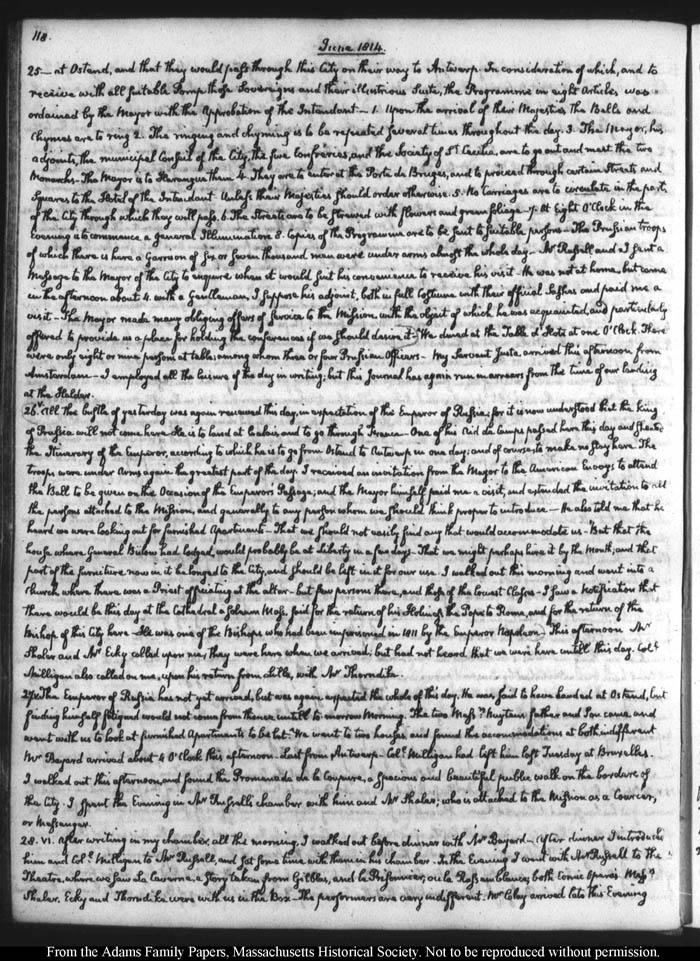 118.
June 1814.
25— at Ostend, and that they would pass through this City on their way to Antwerp. In consideration of which, and to
receive with all suitable Pomp those Sovereigns and their illustrious Suite, the Programme in eight Articles, was
ordained by the Mayor with the Approbation of the Intendant— 1. Upon the arrival of their Majesties the Bells and
Chymes are to ring 2. The ringing and chyming is to be repeated several times throughout the day. 3. The Mayor, his
adjoints, the municipal Council of the City, the five Confreries, and the Society of St. Cecilia, are to go out and meet the two
Monarchs— The Mayor is to Harangue them 4. They are to enter at the Porte de Bruges, and to proceed through certain Streets and
Squares to the Hotel of the Intendant. Unless their Majesties should order otherwise. 5. No Carriages are to circulate in the parts
of the City through which they will pass. 6. The Streets are to be strewed with flowers and green foliage— 7. At Eight O'Clock in the
Evening is to commence a general Illumination. 8. Copies of the Programme are to be sent to suitable persons— The Prussian troops
of which there is here a Garrison of six or seven thousand men were under arms almost the whole day— Mr Russell and I sent a
Message to the Mayor of the City to enquire when it would suit his convenience to receive his visit— He was not at home, but came
in the afternoon about 4. with a Gentleman, I suppose his adjoint, both in full Costume with their official Sashes and paid me a
visit— The Mayor made many obliging offers of Service to the Mission, with the object of which he was acquainted, and particularly
offered to provide us a place for holding the conferences if we should desire it— We dined at the Table d'Hote at one O'Clock. There
were only eight or nine persons at table; among whom three or four Prussian Officers— My Servant Juste, arrived this afternoon from
Amsterdam— I employed all the leisure of the day in writing; but this Journal has again run in arrears from the time of our landing
at the Helder.
26. V. All the bustle of yesterday was again renewed this day, in expectation of the Emperor of Russia; for it is now understood that the King
of Prussia will not come here. He is to land at Calais and to go through France— One of his Aid de Camps passed here this day and
the Itinerary of the Emperor, according to which he is to go from Ostend to Antwerp in one day; and of course, to make no stay here. The
troops were under Arms again the greatest part of the day. I received an invitation from the Mayor to the American Envoys to attend
the Ball to be given on the Occasion of the Emperor's Passage; and the Mayor himself paid me a visit, and extended the invitation to all
the persons attached to the Mission, and generally to any person whom we should think proper to introduce— He also told me that he
heard we were looking out for furnished Apartments— That we should not easily find any that would accommodate us— But that the
house where General Bülow had lodged, would probably be at liberty in a few days— That we might perhaps hire it by the Month, and that
part of the furniture now in it belonged to the City, and should be left in it for our use. I walked out this morning and went into a
Church, where there was a Priest officiating at the altar— but few persons there, and those of the lowest Classes— I saw a Notification that
there would be this day at the Cathedral a Solemn Mass, said for the return of his Holiness the Pope to Rome, and for the return of the
Bishop of this City here— He was one of the Bishops who had been imprisoned in 1811 by the Emperor Napoleon— This afternoon Mr
Shaler and Mr Ecky called upon me, they were here when we arrived; but had not heard that we were here untill this day. Coll.
Milligan also called on me, upon his return from Lille, with Mr Thorndike.
27. The Emperor of Russia has not yet arrived, but was again expected the whole of this day. He was said to have landed at Ostend, but
finding himself fatigued would not come from thence untill to-morrow Morning. The two Messrs Meytens father and Son came and
went with us to look at furnished Apartments to be let— We went to two houses, and found the accommodations at both indifferent
Mr Bayard arrived about 4 O'Clock this afternoon— Last from Antwerp— Coll. Milligan had left him last Tuesday at Bruxelles.
I walked out this afternoon, and found the Promenade de la Coupure, a spacious and beautiful public walk on the borders of
the City. I spent the Evening in Mr Russell's chamber with him and Mr Shaler; who is attached to the Mission as a Courier,
or Messenger.
28. VI. After writing in my chamber, all the morning, I walked out before dinner with Mr Bayard— After dinner I introduced
him and Coll. Milligan to Mr Russell, and sat some time with them in his chamber— In the Evening I went with Mr Russell to the
Theatre, where we saw La Caverne, a story taken from Gil blas, and le Prisonnier, ou la Ressemblance; both Comic Operas. Messrs
Shaler, Ecky and Thorndike were with us in the Box— The performers are very indifferent. Mr Clay arrived late this Evening
From the Adams Family Papers, Massachusetts Historical Society. Not to be reproduced without permission.